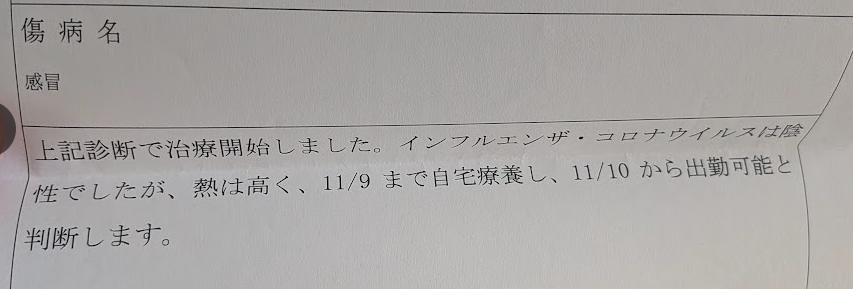 傷病名
感冒
上記診断で治療開始しました。インフルエンザ・コロナウイルスは陰
性でしたが、熱は高く、11/9 まで自宅療養し、11/10 から出勤可能と
判断します。